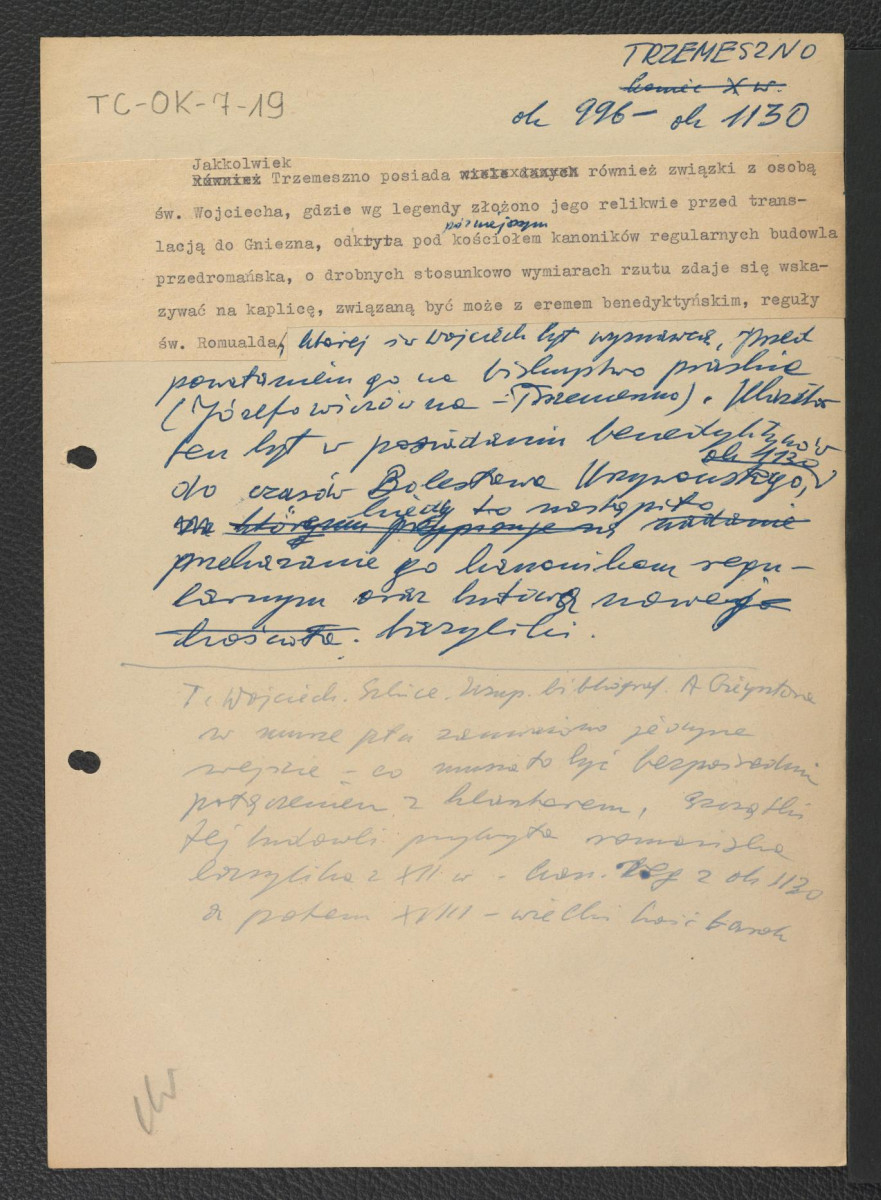 TRZEMESZNO
koniec X w.
TC-OK-7-19
ok 996 – ok 1130
Jakkolwiek
Również Trzemeszno posiada wiele danych również związki z osobą
św. Wojciecha, gdzie wg legendy złożono jego relikwie przed trans-
późniejszym
lacją do Gniezna, odkryta pod kościołem kanoników regularnych budowla
przedromańska, o drobnych stosunkowo wymiarach rzutu zdaje się wska-
zywać na kaplicę, związaną być może z eremem benedyktyńskim, reguły
św. Romualda, której św Wojciech był wyznawcą, przed
powołaniem go na biskupstwo praskie
(Józefowiczówna – Trzemeszno). Klasztor
ten był w posiadaniu benedyktynów
ok 1130
do czasów Bolesława Krzywoustego,
kiedy to nastąpiło
którym przypisuje się nadanie
przekazanie go kanonikom regu-
larnym oraz budową nowej
kościoła. bazyliki.
Wojciech. bibliograf.
w murze płn zauważono jedyne
wejście – co musiało być bezpośrednim
połączeniem z klasztorem,
tej budowli przykryła romańska
bazylika z XII w – kan. reg z ok 1130
a potem XVIII – wielki kość barok